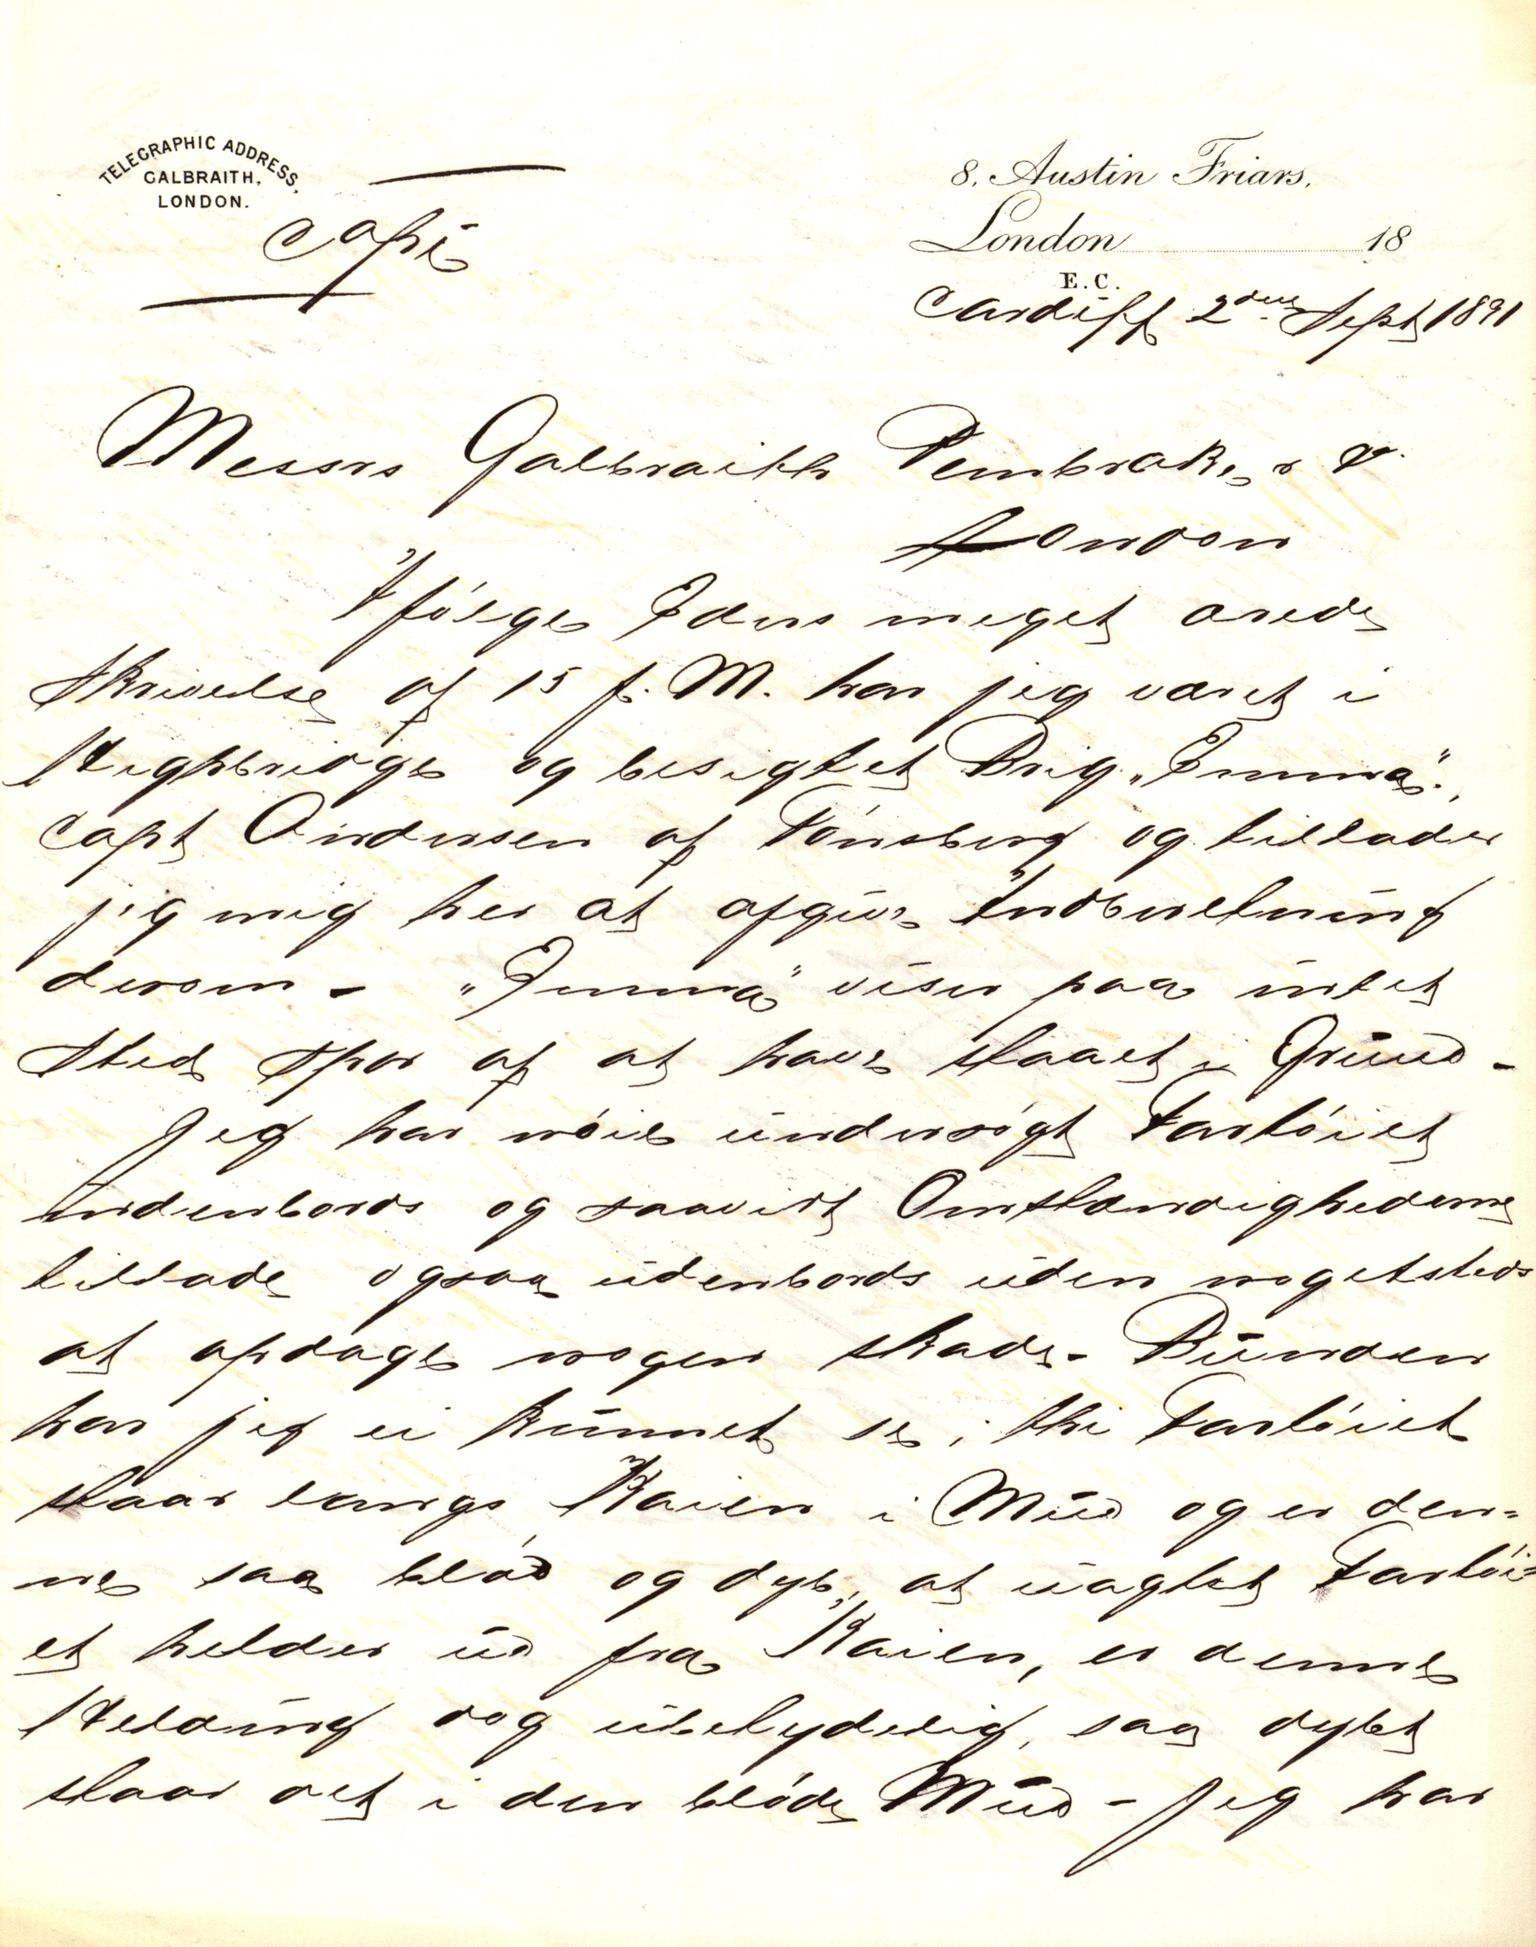 TELEGRAPHIC ADDRESS,
GALBRAITH,
LONDON.
Copi
8, Austin Friars,
London 18
E.C.
Cardiff 2den Sept 1891
Messrs Galbraith Pembroke & Co.
London
Ifølge Eders meget ærede
Skrivelse af 15 f. M. har jeg været i
Highbridge og besigtet Brig „Emma",
Capt Andersen af Tønsberg og tillader
jeg mig her at afgive Indberetning
derom - „Emma" viser paa intet
Sted Spor af at have staaet i Grund -
Jeg har nøie undersøgt Fartøiet
indenbords og saavidt Omstændighederne
tillade ogsaa udenbords uden nogetsteds
at opdage nogen skade - Bunden
har jeg ei kunnet se, thi Fartøiet
staar langs Kaien i Mud og er den=
ne saa blød og dyb, at uagtet Fartøi=
et helder ud fra Kaien, er denne
Helding dog ubetydelig, saa dybt
staar det i den bløde Mud - Jeg har